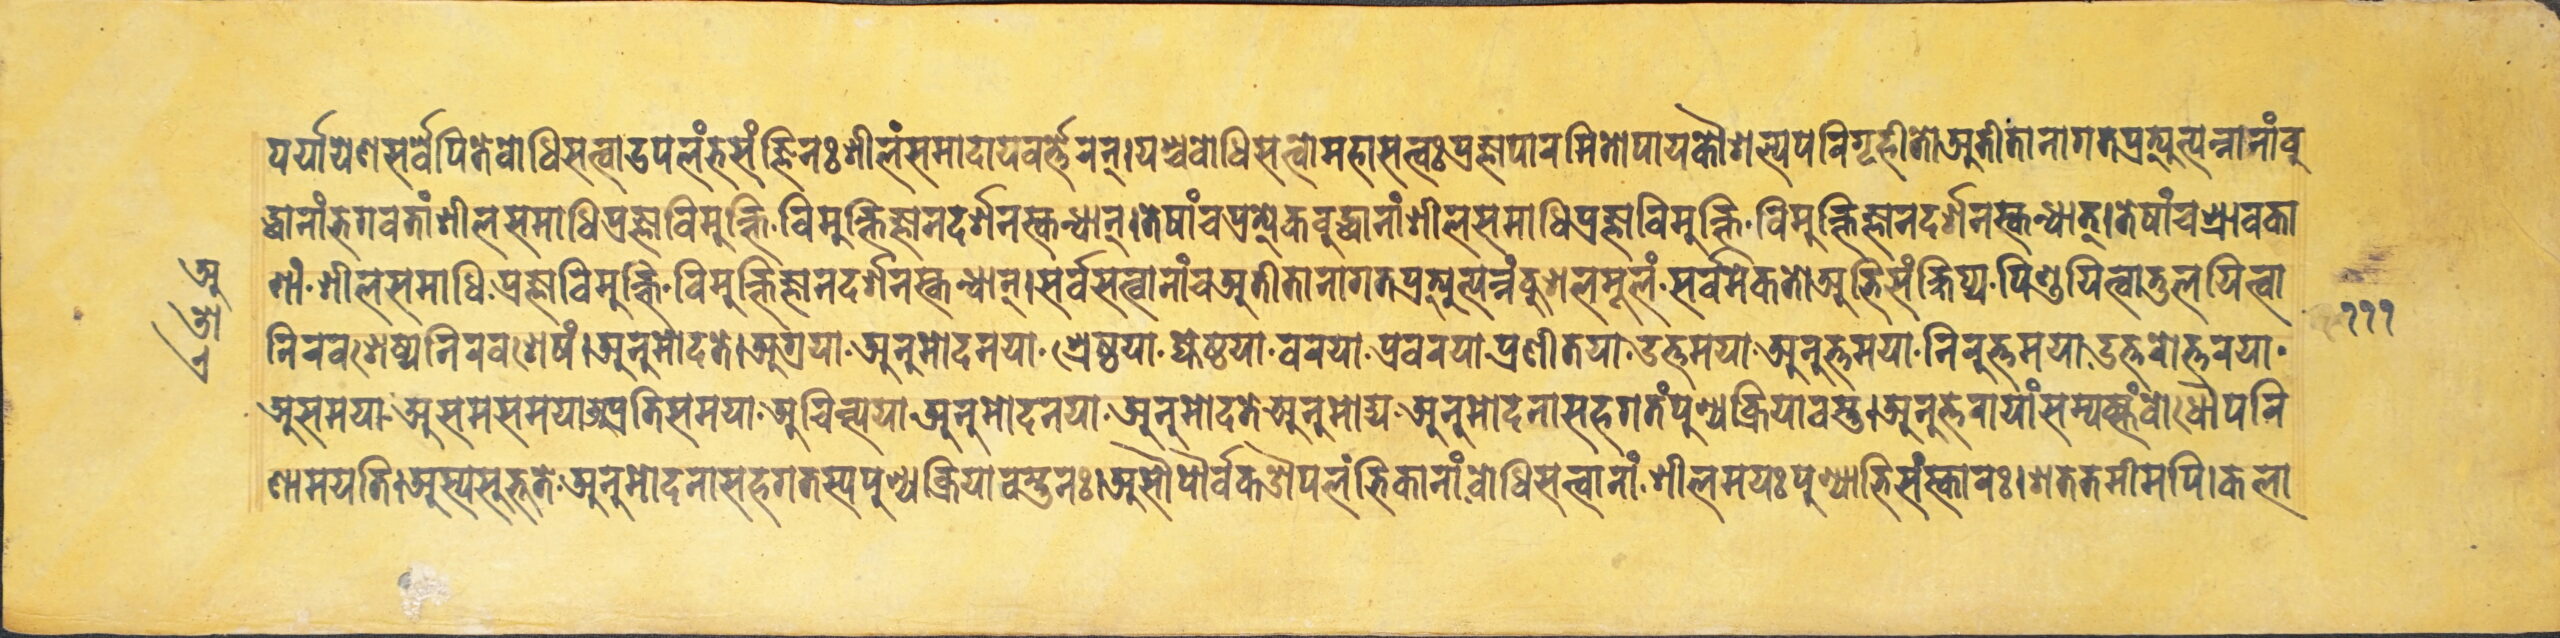 पर्यायेण सर्वेपि ते बोधिसत्वा उपलंभसंज्ञिनः शीलं समादाय वर्त्तेरन्। यश्च बोधिसत्वो महासत्वः प्रज्ञापारमितोपायकौशल्यपरिगृहीतो अतीतानागतप्रत्युत्पन्नानां बु
द्धानां भगवतां शीलसमाधिप्रज्ञाविमुक्ति॰विमुक्तिज्ञानदर्शनस्कन्धान्। तेषां च प्रत्येकबुद्धानां शीलसमाधिप्रज्ञाविमुक्ति॰विमुक्तिज्ञानदर्शनस्कन्धान्। तेषां च श्रावका
णां॰ शीलसमाधि॰प्रज्ञाविमुक्ति॰विमुक्तिज्ञानदर्शनस्कन्धान्। सर्वसत्वानां च अतीतानागतप्रत्युत्पन्नं कुशलमूलं॰ सर्वमेकतो अभिसंक्षिप्य॰ पिण्डयित्वा तुलयित्वा
निरवशेष्य निरवशेषं। अनुमोदते। अग्रया॰ अनुमोदनया॰ श्रेष्ठया॰ ज्येष्ठया॰ वरया॰ प्रवरया॰ प्रणीतया॰ उत्तमया॰ अनुत्तमया॰ निरुत्तमया॰ उत्तरोत्तरया॰
असमया॰ असमसमया अप्रतिसमया॰ अचिन्त्यया॰ अनुमोदनया॰ अनुमोदते॰ अनुमोद्य॰ अनुमोदनासहगतं पुण्यक्रियावस्तु। अनुत्तरायां सम्यक्संबोधौ परि
णामयति। अस्य सुभूते॰ अनुमोदनासहगतस्य पुण्यक्रियावस्तुनः। असौ पौर्वक औपलंभिकानां बोधिसत्वानां॰ शीलमयः पुण्याभिसंस्कारः। शततमीमपि। कला
१११